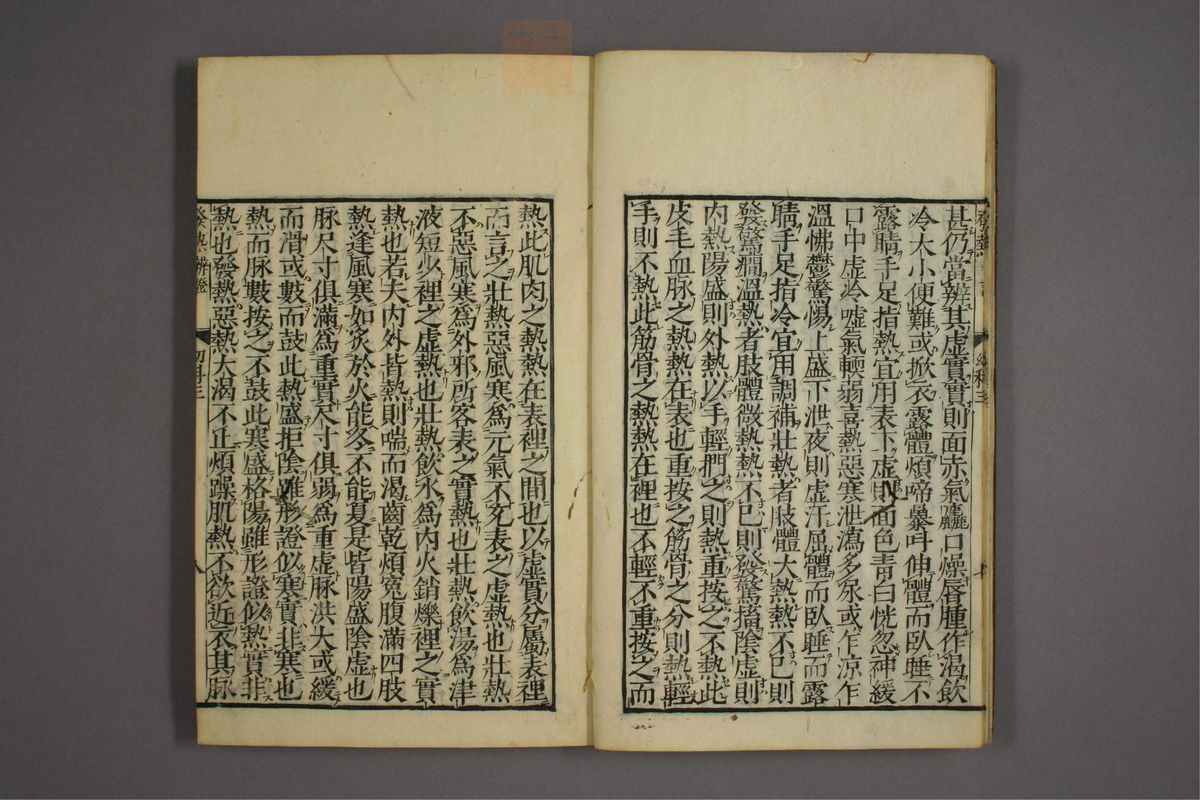 甚仍當辨其虛實實則面赤氣麤口燥唇腫作渴飲
冷大小便難或掀衣露體煩啼暴呌伸體而臥睡不
露睛手足指熱宜用表下虛則面色青白恍忽神緩
口中虛冷噓氣輭弱喜熱惡寒泄瀉多尿或乍涼乍
溫怫鬱驚惕上盛下泄夜則虛汗屈體而臥睡而露
睛手足指冷宜用調補壯熱者肢體大熱熱不已則
發驚癇溫熱者肢體微熱熱不已則發驚搐陰虛則
內熱陽盛則外熱以手輕捫之則熱重按之不熱此
皮毛血脉之熱熱在表也重按之筋骨之分則熱輕
手則不熱此筋骨之熱熱在裡也不輕不重按之而
熱此肌肉之熱熱在表裡之間也以虛實分屬表裡
而言之壯熱惡風寒爲元氣不充表之虛熱也壯熱
不惡風寒爲外邪所客表之實熱也壯熱飲湯爲津
液短少裡之虛熱也壯熱飲水爲內火銷爍裡之實
熱也若夫內外皆熱則喘而渴齒乾煩寃腹滿四肢
熱逢風寒如炙於火能冬不能夏是皆陽盛陰虛也
脉尺寸俱滿爲重實尺寸俱弱爲重虛脉洪大或緩
而滑或數而鼓此熱盛拒陰雖形證似寒實非寒也
熱而脉數按之不鼓此寒盛格陽雖形證似熱實非
熱也發熱惡熱大渴不止煩躁肌熱不欲近衣其脉
發熱辨證